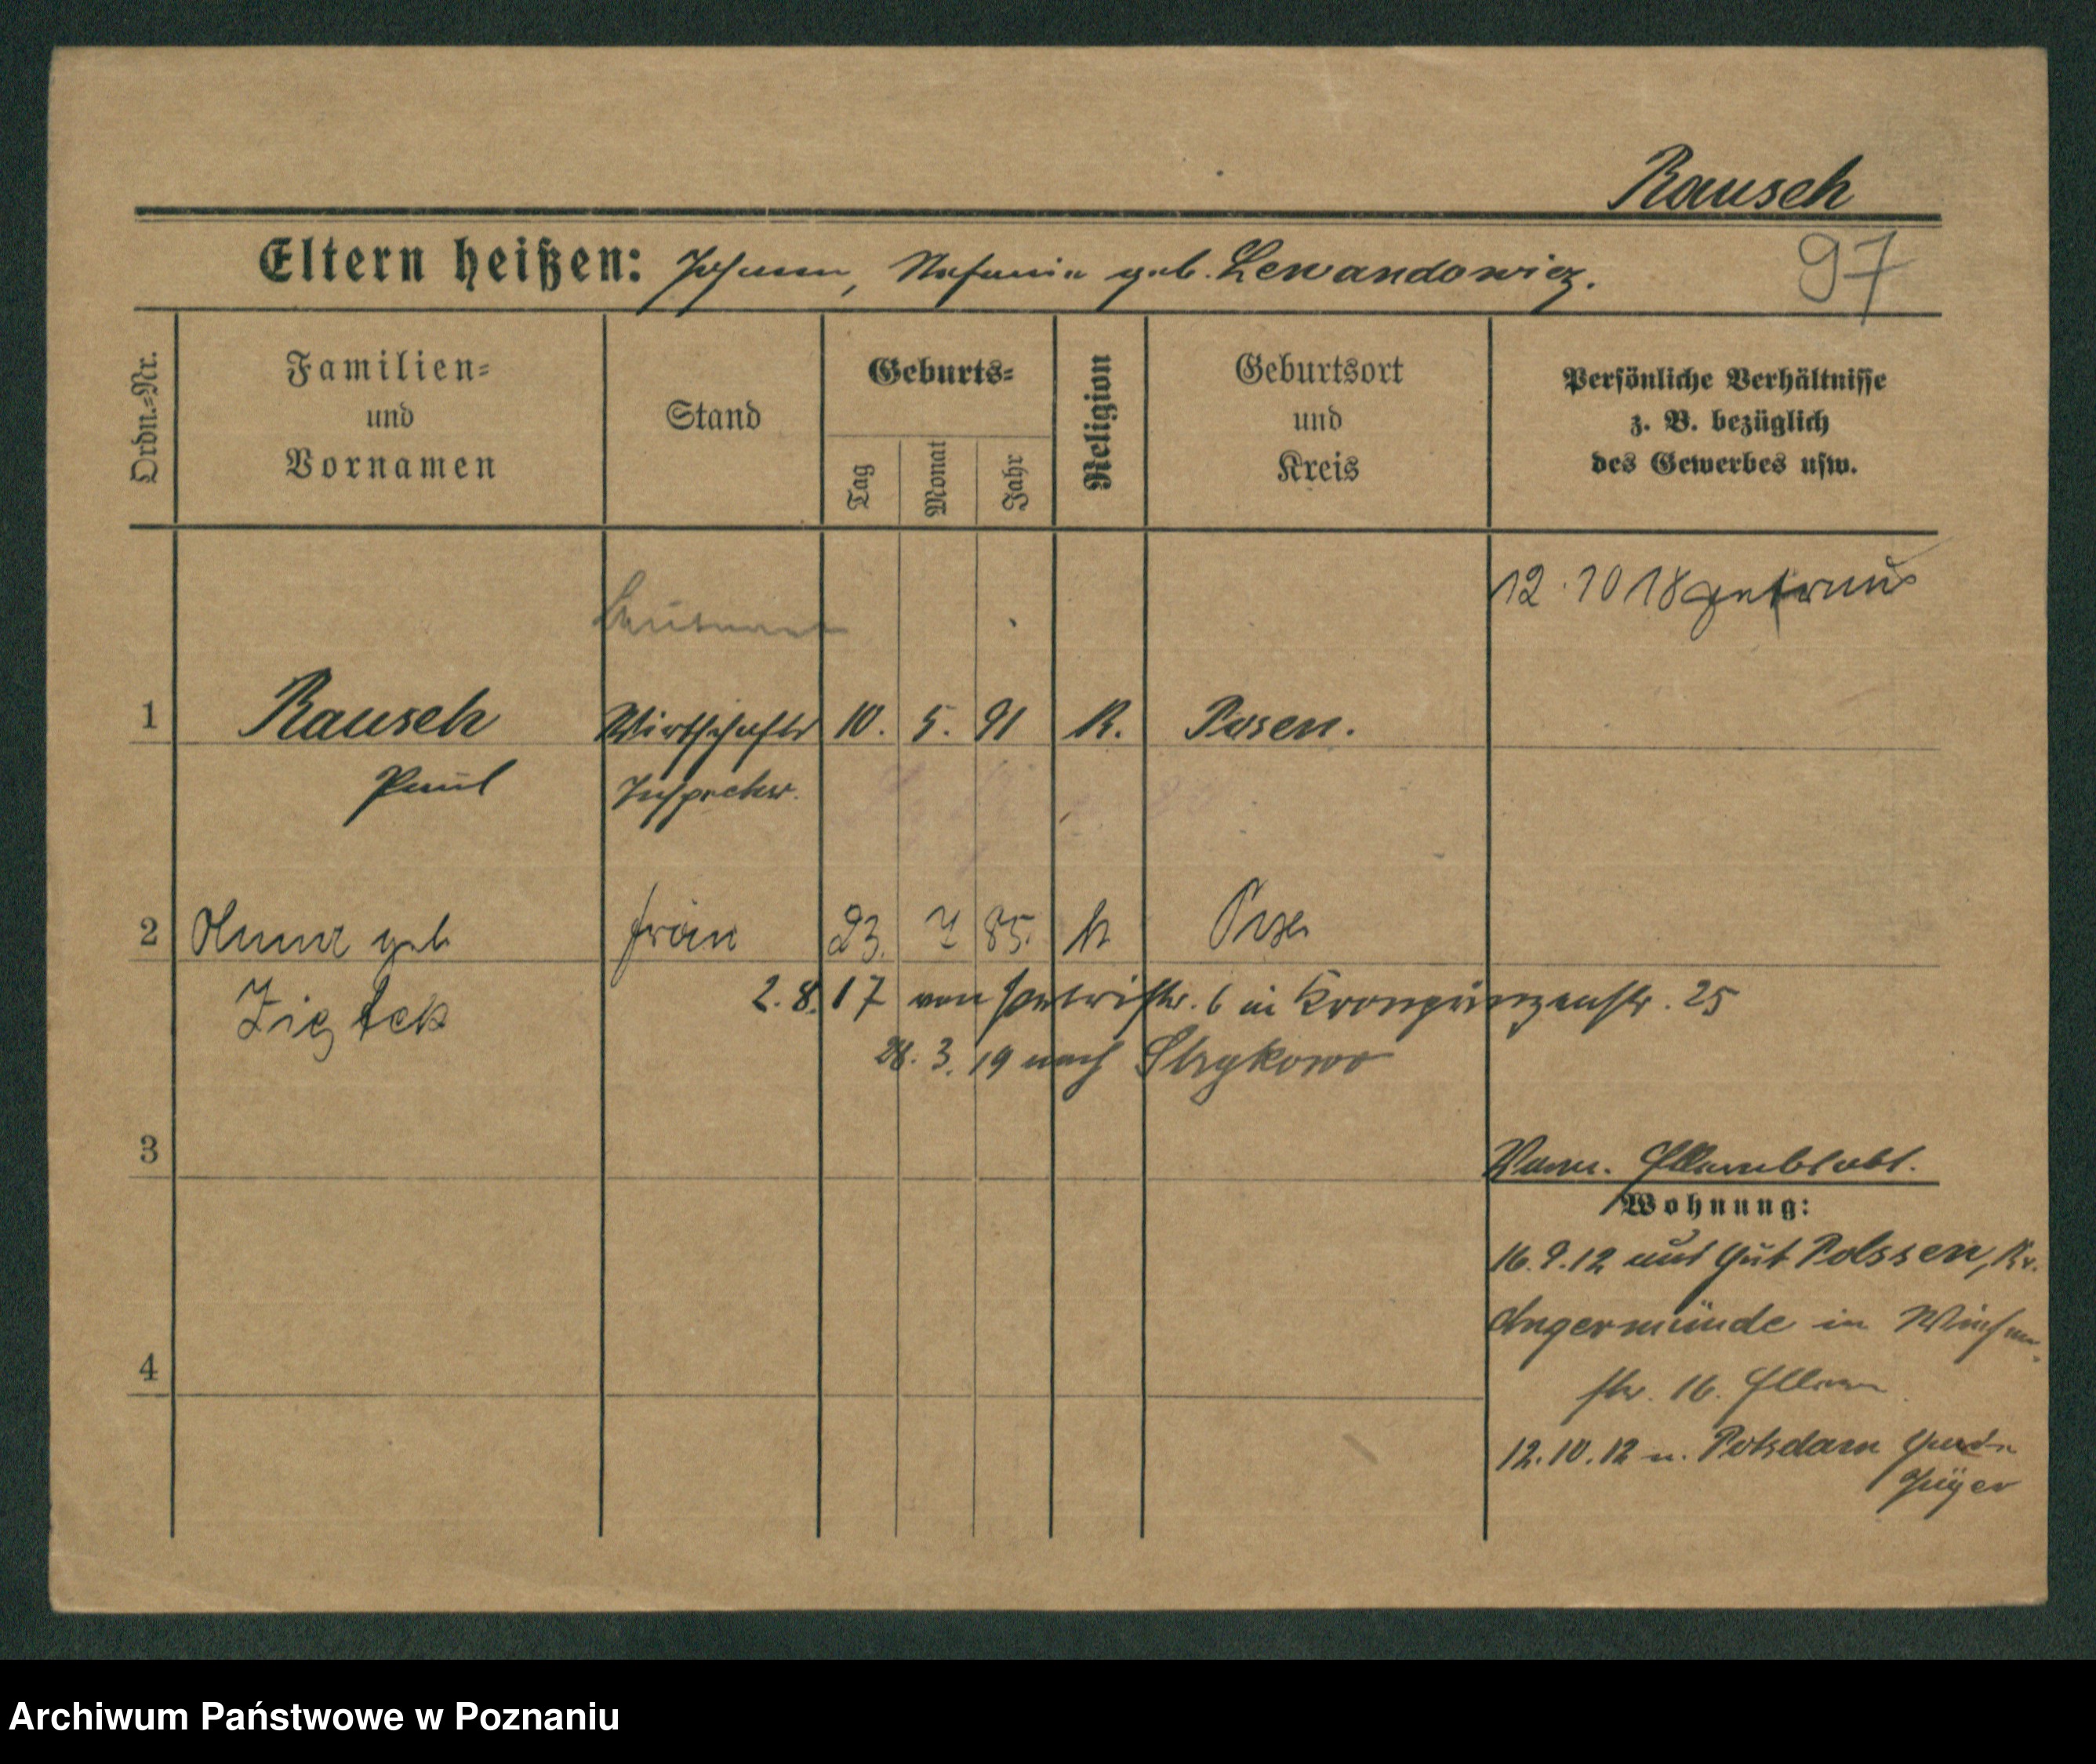 Rausch
Eltern heißen: Johann, Stefania geb. Lewandowicz.
97
Ordn.=Nr.
Familien=
und
Vornamen
Stand
Geburts=
Tag
Monat
Jahr
Religion
Geburtsort
und
Kreis
Persönliche Verhältnisse
z. B. bezüglich
des Gewerbes usw.
12.10 18 getraut
Leutnant
1 Rausch Wirtschafts 10. 5. 91 K. Posen.
Paul Inspektor.
2 Anna geb Frau 23. 85. k Posen
Ziętek
2.8.17 von str. 6 in Kronprinzenstr. 25
28. 3. 19 nach Strykowo
3
Vorm. Elternblatt.
Wohnung:
16.9.12 aus Gut Polssen, Kr.
Angermünde in
4
str. 16. Eltern
12.10.12 n. Potsdam Garde
Jäger
Archiwum Państwowe w Poznaniu